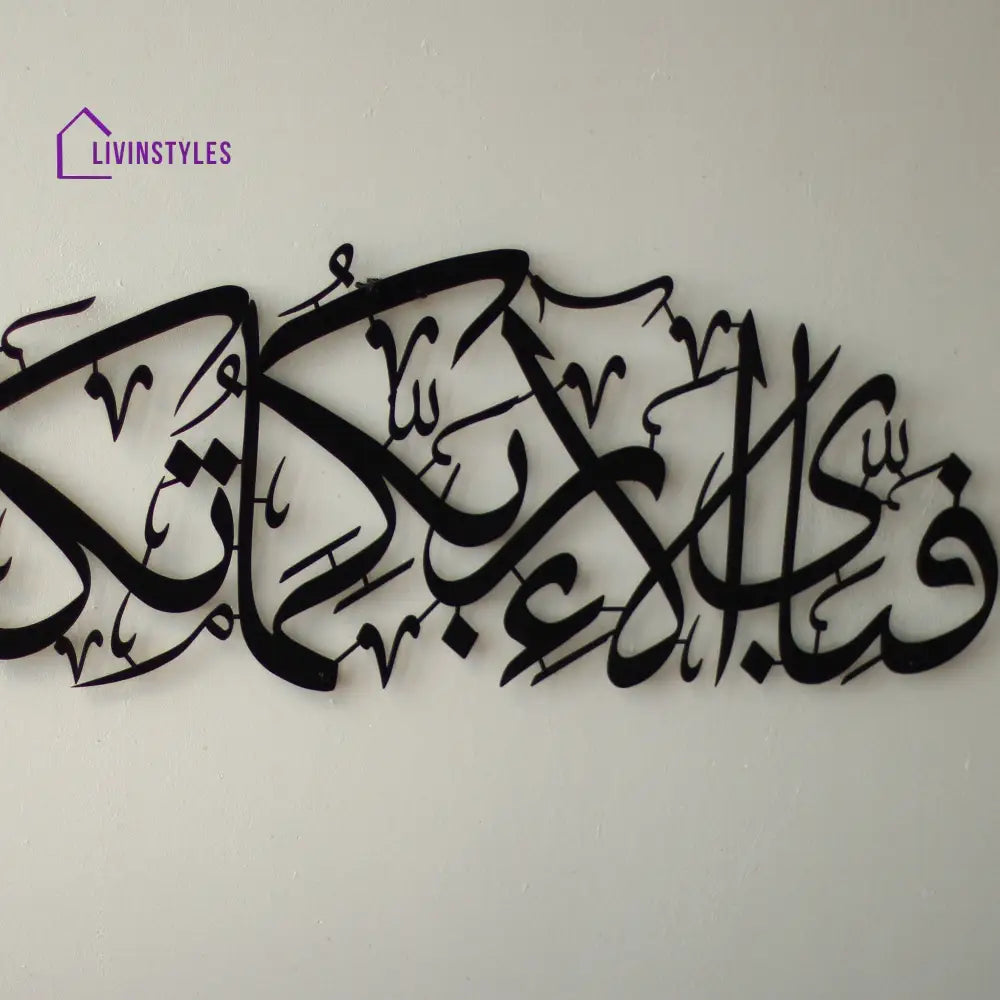 LIVINSTYLES
فَبِأَيِّ آلَاءِ رَبِّكُمَا